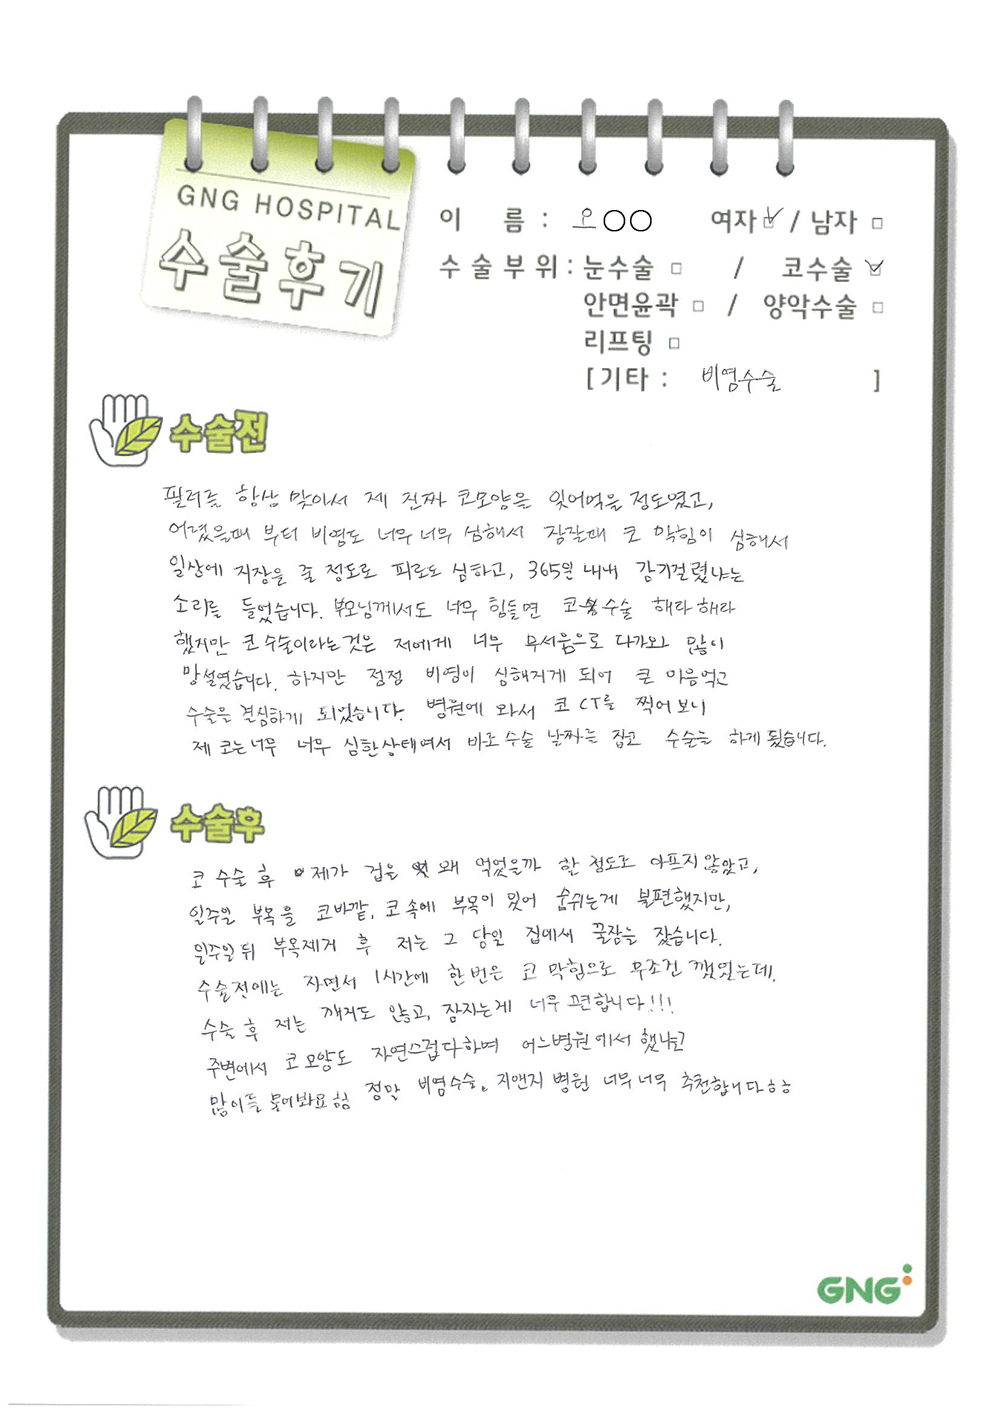 GNG HOSPITAL
수술후기
이 름 : 오○○ 여자☑ / 남자 □
수술부위 : 눈수술 □ / 코수술 ☑
안면윤곽 □ / 양악수술 □
리프팅 □
[기타 : 비염수술 ]
수술전
필러를 항상 맞아서 제 진짜 코모양을 잊어먹을 정도였고,
어렸을때 부터 비염도 너무 너무 심해서 잠잘때 코 막힘이 심해서
일상에 지장을 줄 정도로 피로도 심하고, 365일 내내 감기걸렸냐는
소리를 들었습니다. 부모님께서도 너무 힘들면 코 수술 해라 해라
했지만 코 수술이라는것은 저에게 너무 무서움으로 다가와 많이
망설였습니다. 하지만 점점 비염이 심해지게 되어 큰 마음먹고
수술을 결심하게 되었습니다. 병원에 와서 코 CT를 찍어보니
제 코는 너무 너무 심한상태여서 바로 수술 날짜를 잡고 수술을 하게 됬습니다.
수술후
코 수술 후 제가 겁을 왜 먹었을까 할 정도로 아프지 않았고,
일주일 부목을 코바깥, 코속에 부목이 있어 숨쉬는게 불편했지만,
일주일 뒤 부목제거 후 저는 그 당일 집에서 꿀잠을 잤습니다.
수술전에는 자면서 1시간에 한번은 코 막힘으로 무조건 깼었는데,
수술 후 저는 깨지도 않고, 잠자는게 너무 편합니다!!!
주변에서 코 모양도 자연스럽다하며 어느병원에서 했냐고
많이들 물어봐요 힘 정말 비염수술. 지앤지 병원 너무 너무 추천합니다ㅎㅎ
GNG